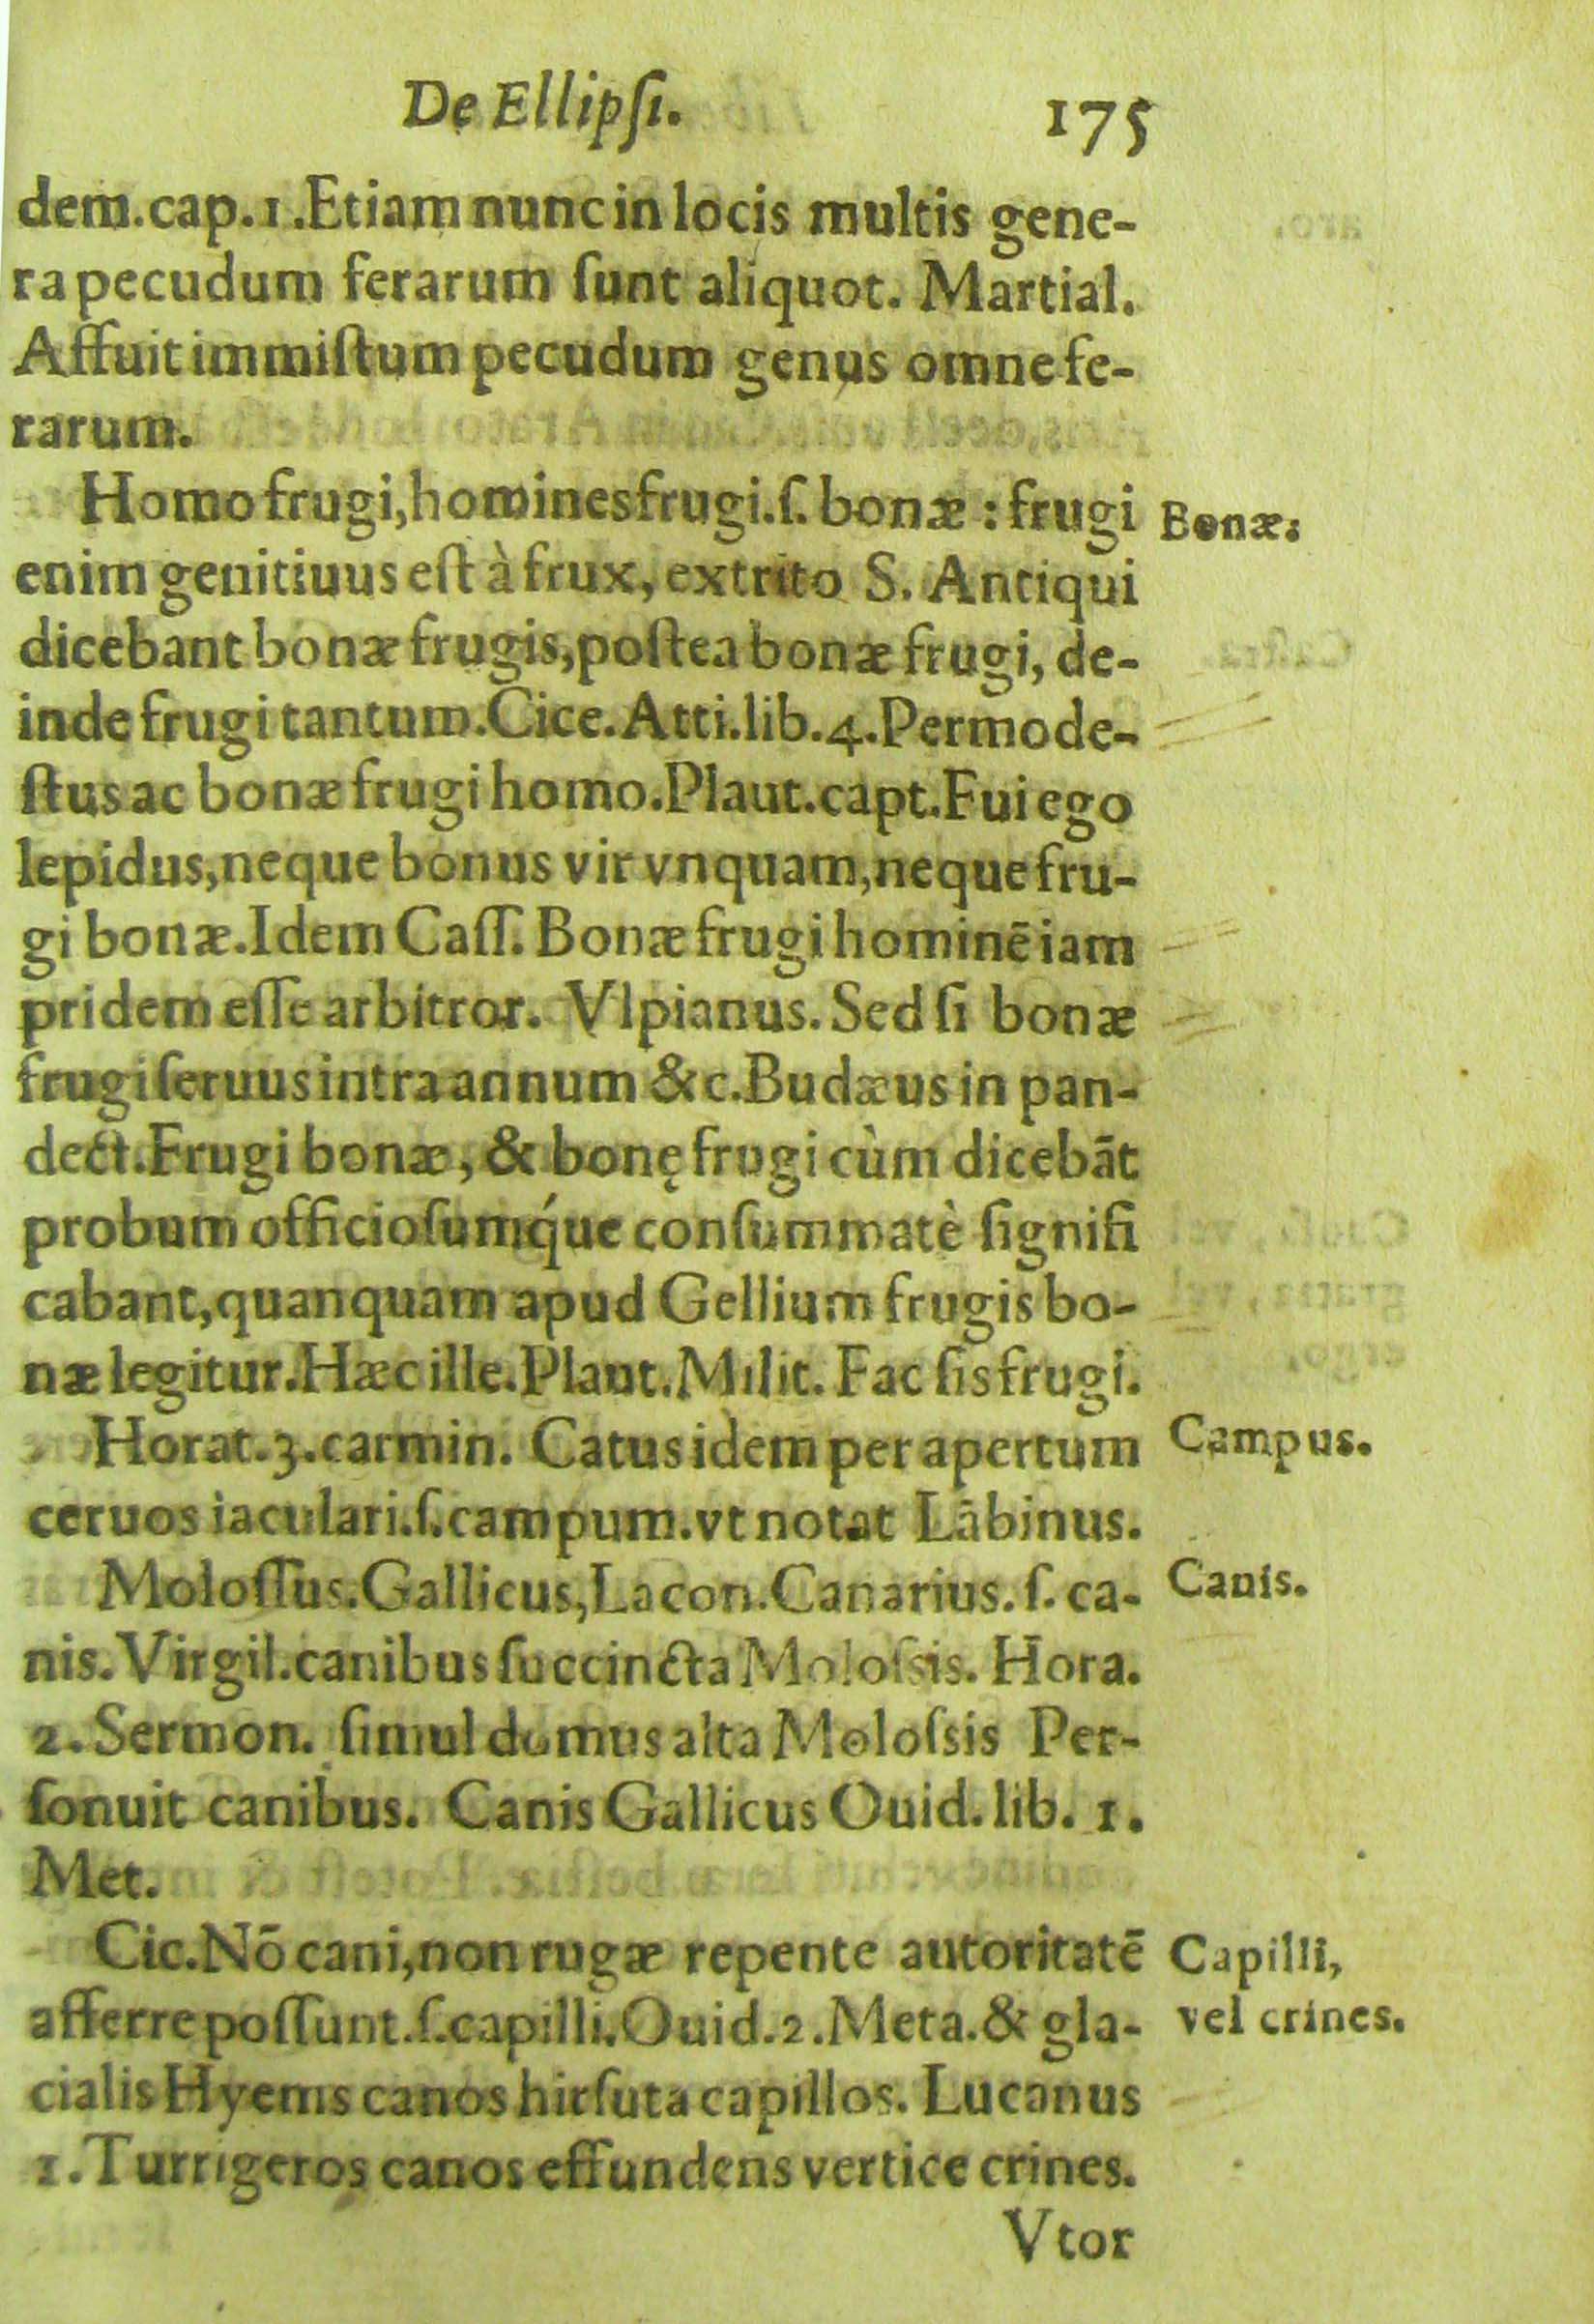 De Ellipſi. 175
dem.cap.1.Etiam nunc in locis multis gene-
ra pecudum ferarum ſunt aliquot. Martial.
Affuit immiſtum pecudum genus omne fe-
rarum.
Homo frugi, homines frugi.ſ. bonæ : frugi
Bonæ:
enim genitiuus eſt à frux, extrito S. Antiqui
dicebant bonæ frugis, poſtea bonæ frugi, de-
inde frugi tantum.Cice.Atti.lib.4.Permode-
ſtus ac bonæ frugi homo.Plaut.capt.Fui ego
lepidus, neque bonus vir vnquam, neque fru-
gi bonæ.Idem Caſſ. Bonæ frugi hominē iam
pridem eſſe arbitror. Vlpianus. Sed ſi bonæ
frugi ſeruus intra annum &c.Budæus in pan-
dect.Frugi bonæ, & bonę frugi cùm dicebāt
probum officioſumq́ue conſummatè ſignifi
cabant, quanquam apud Gellium frugis bo-
næ legitur.Hæc ille.Plaut.Milit. Fac ſis frugi.
Horat.3.carmin. Catus idem per apertum
Campus.
ceruos iaculari.ſ.campum.vt notat Lābinus.
Moloſſus.Gallicus, Lacon.Canarius.ſ. ca-
Canis.
nis. Virgil.canibus ſuccincta Moloſsis. Hora.
2. Sermon. ſimul domus alta Moloſsis Per-
ſonuit canibus. Canis Gallicus Ouid. lib. 1.
Met.
Cic.Nō cani, non rugæ repente autoritatē
Capilli,
afferre poſſunt.ſ.capilli.Ouid.2.Meta.& gla-
vel crines.
cialis Hyems canos hirſuta capillos. Lucanus
1.Turrigeros canos effundens vertice crines.
Vtor